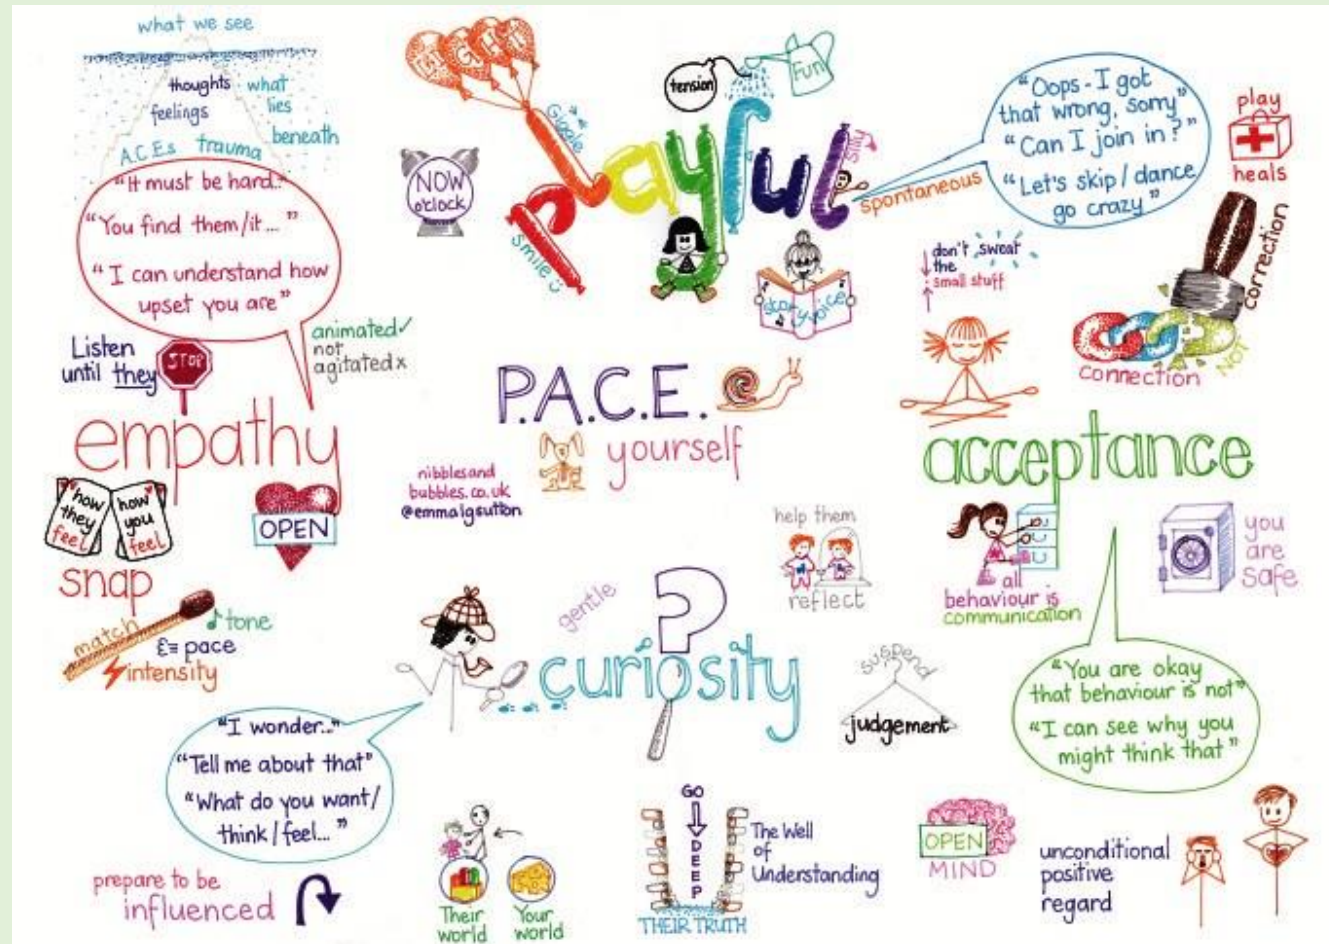 what we see
thoughts
feelings
what
lies
beneath
A.C.Es trauma
"It must be hard.."
"You find them/it..."
"I can understand how
upset you are"
Listen
until they
STOP
animated ✓
not
agitated x
empathy
how
they
feel
how
you
feel
OPEN
snap
match
tone
pace
intensity
LIGHT
Giggle
playful
smile
silly
NOW
o'clock
tension
Fun
story voice
spontaneous
"Oops - I got
that wrong, sorry"
"Can I join in?"
"Let's skip / dance
go crazy"
play
heals
don't sweat
the
small stuff
connection
NOT
correction
P.A.C.E.
yourself
nibblesand
bubbles.co.uk
@emmalgsutton
acceptance
all
behaviour is
communication
you
are
safe
"You are okay
that behaviour is not"
"I can see why you
might think that"
help them
reflect
gentle
?
curiosity
suspend
judgement
"I wonder..."
"Tell me about that"
"What do you want/
think/feel..."
prepare to be
influenced
Their
world
Your
world
GO
DEEP
The Well
of
Understanding
THEIR TRUTH
OPEN
MIND
unconditional
positive
regard